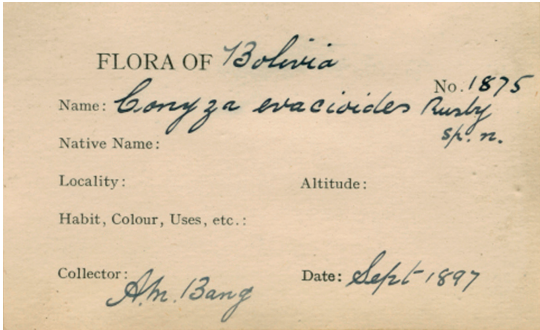 FLORA OF Bolivia
No. 1875
Name: Conyza evacioides Rusby
sp. n.
Native Name:
Locality: Altitude:
Habit, Colour, Uses, etc.:
Collector: A.M. Bang Date: Sept 1897